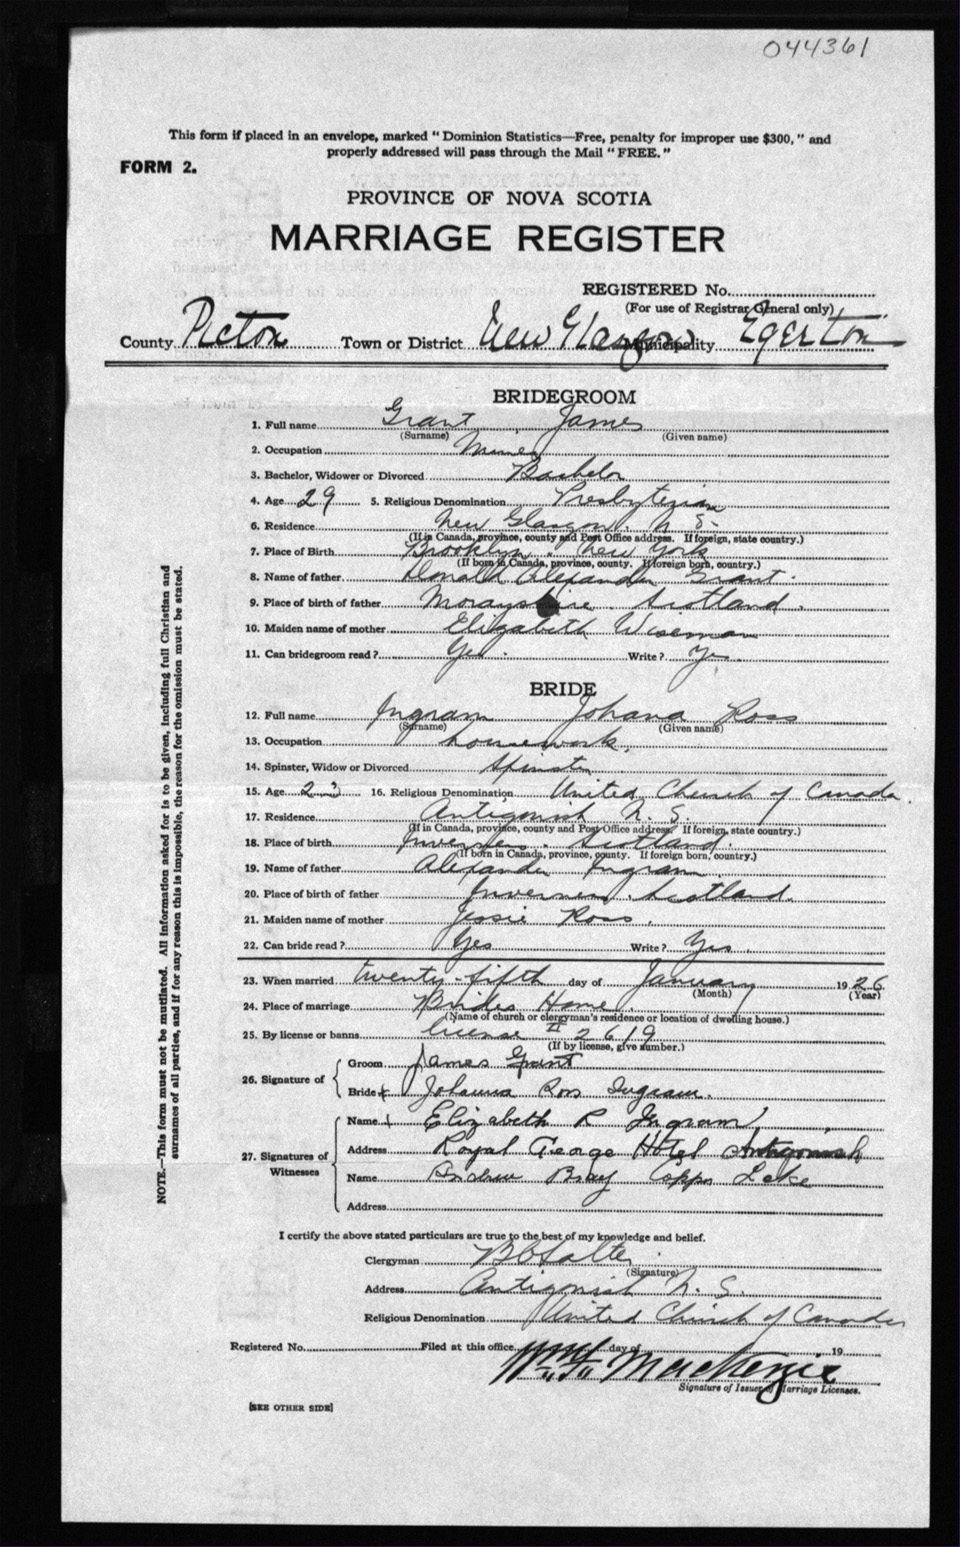 044361
This form if placed in an envelope, marked "Dominion Statistics—Free, penalty for improper use $300," and
properly addressed will pass through the Mail "FREE."
FORM 2.
PROVINCE OF NOVA SCOTIA
MARRIAGE REGISTER
REGISTERED No.
(For use of Registrar General only)
County Pictou Town or District New Glasgow Municipality Egerton
BRIDEGROOM
1. Full name Grant James
(Surname) (Given name)
2. Occupation Miner
3. Bachelor, Widower or Divorced Bachelor
4. Age 29 5. Religious Denomination Presbyterian
6. Residence New Glasgow, N. S.
(If in Canada, province, county and Post Office address. If foreign, state country.)
7. Place of Birth Brooklyn, New York
(If born in Canada, province, county. If foreign born, country.)
8. Name of father Donald Alexander Grant.
9. Place of birth of father Morayshire. Scotland.
10. Maiden name of mother Elizabeth Wiseman
11. Can bridegroom read? Yes. Write? Yes.
BRIDE
12. Full name Ingram Johana Ross
(Surname) (Given name)
13. Occupation housework.
14. Spinster, Widow or Divorced Spinster.
15. Age 23 16. Religious Denomination United Church of Canada.
17. Residence Antigonish N. S.
(If in Canada, province, county and Post Office address. If foreign, state country.)
18. Place of birth Inverness. Scotland.
(If born in Canada, province, county. If foreign born, country.)
19. Name of father Alexander Ingram.
20. Place of birth of father Inverness. Scotland.
21. Maiden name of mother Jessie Ross.
22. Can bride read? Yes Write? Yes.
23. When married twenty-fifth day of January 1926
(Month) (Year)
24. Place of marriage Brides Home.
(Name of church or clergyman's residence or location of dwelling house.)
25. By license or banns license 2619
(If by license, give number.)
26. Signature of
Groom James Grant
Bride Johanna Ross Ingram.
27. Signatures of Witnesses
Name Elizabeth R Ingram
Address Royal George Hotel Antigonish
Name Andrew Bray Copper Lake
Address
I certify the above stated particulars are true to the best of my knowledge and belief.
Clergyman B C Salter
(Signature)
Address Antigonish N. S.
Religious Denomination United Church of Canada
Registered No. Filed at this office day of 19
Wm. F. MacKenzie
Signature of Issuer of Marriage Licenses.
[SEE OTHER SIDE]
NOTE.—This form must not be mutilated. All information asked for is to be given, including full Christian and
surnames of all parties, and if for any reason this is impossible, the reason for the omission must be stated.